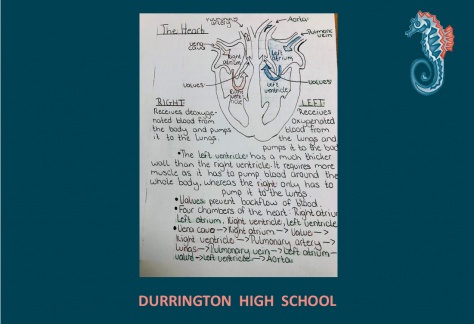 The Heart
Pulmonary artery
Aorta
Pulmonary vein
Vena cava
Right atrium
Left atrium
Valves
Valves
Right ventricle
Left ventricle
RIGHT:
Receives deoxyge-
nated blood from
the body and pumps
it to the lungs.
LEFT:
Receives
oxygenated
blood from
the lungs and
pumps it to the bod
• The left ventricle has a much thicker
wall than the right ventricle. It requires more
muscle as it has to pump blood around the
whole body, whereas the right only has to
pump it to the lungs
• Valves prevent backflow of blood.
• Four chambers of the heart: Right atrium
Left atrium, Right ventricle, left ventricle
• Vena cava → Right atrium → Valve →
Right ventricle → Pulmonary artery →
Lungs → Pulmonary vein → Left atrium →
valve → Left ventricle → Aorta
DURRINGTON HIGH SCHOOL